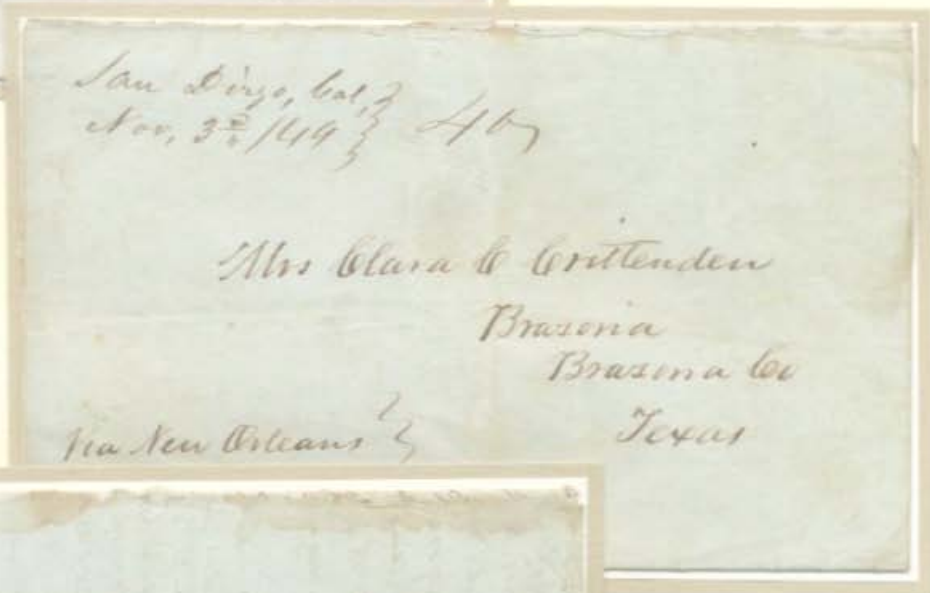 San Diego, Cal,
Nov, 3d /49
40
Mrs Clara C Crittenden
Brasoria
Brasoria Co
Texas
Via New Orleans